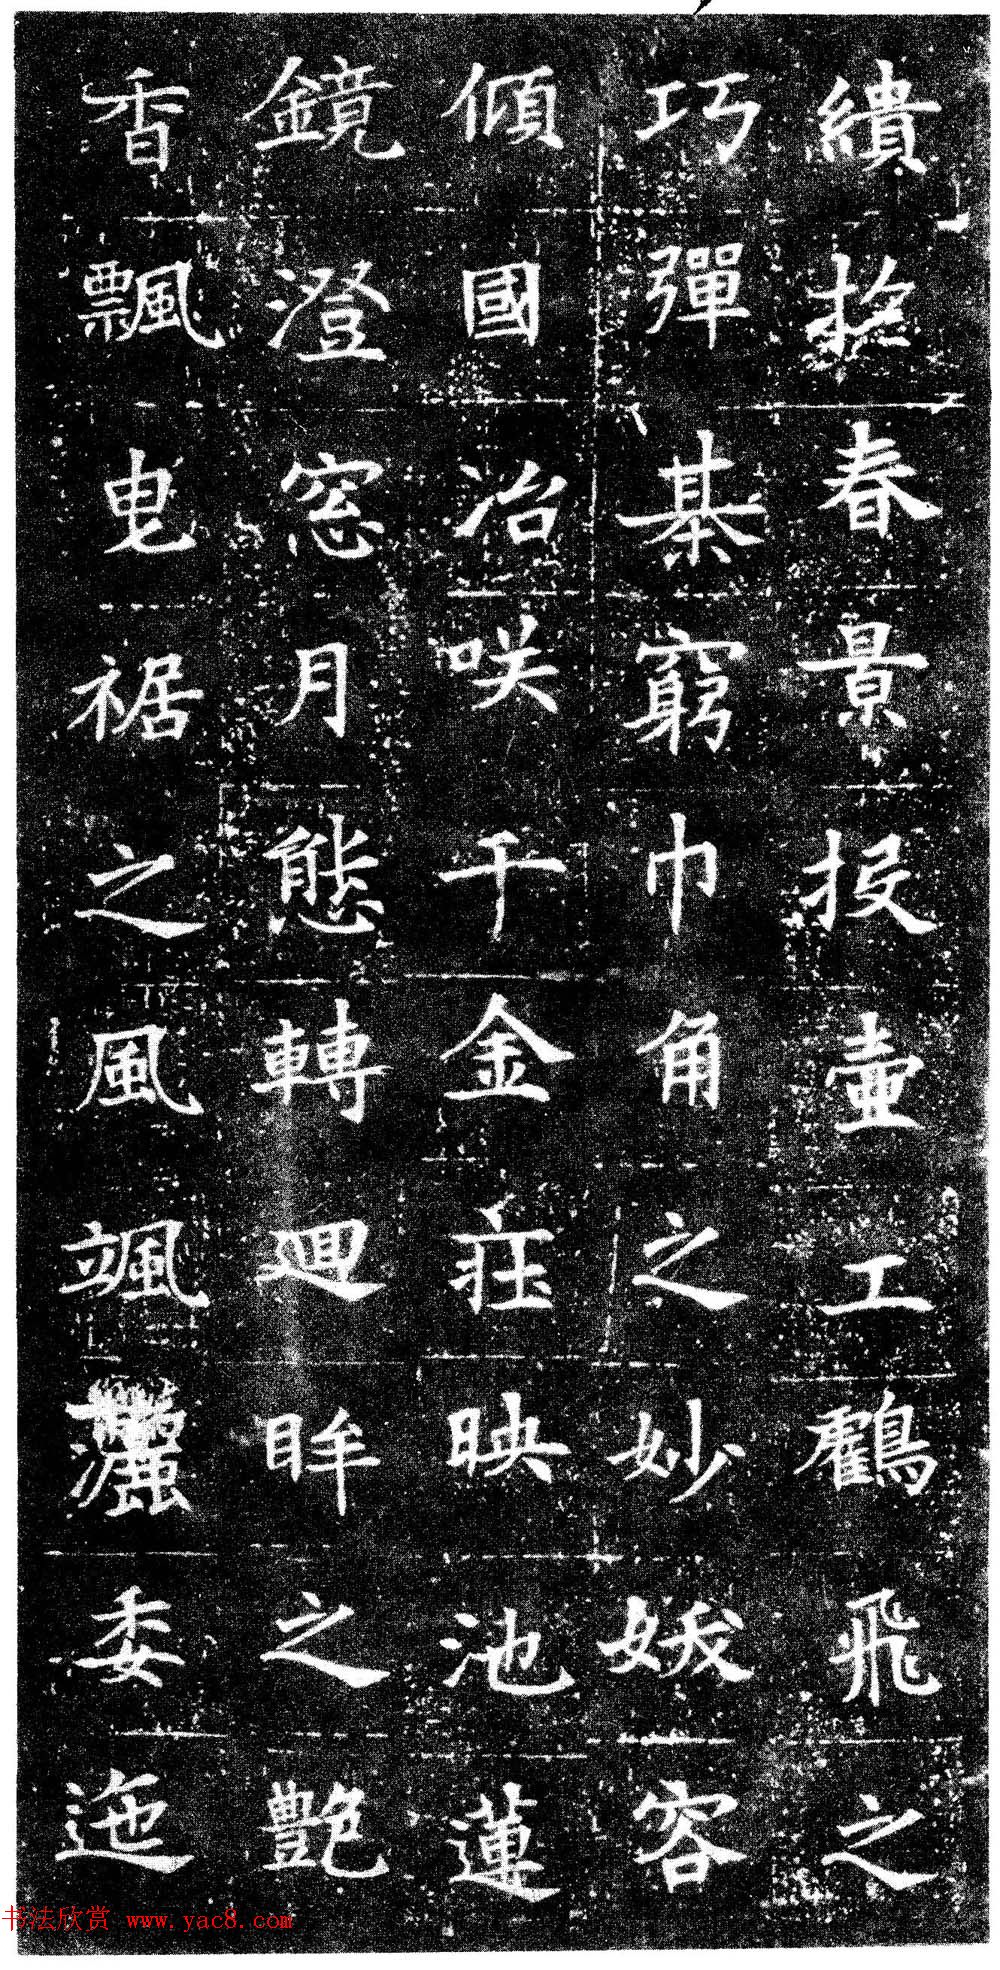 繢於春景投壺工鸖飛之
巧彈棊窮巾角之妙妖容
傾國冶咲千金莊映池蓮
鏡澄窓月態轉廻眸之艷
香飄曳裾之風颯灑委迤
书法欣赏 www.yac8.com